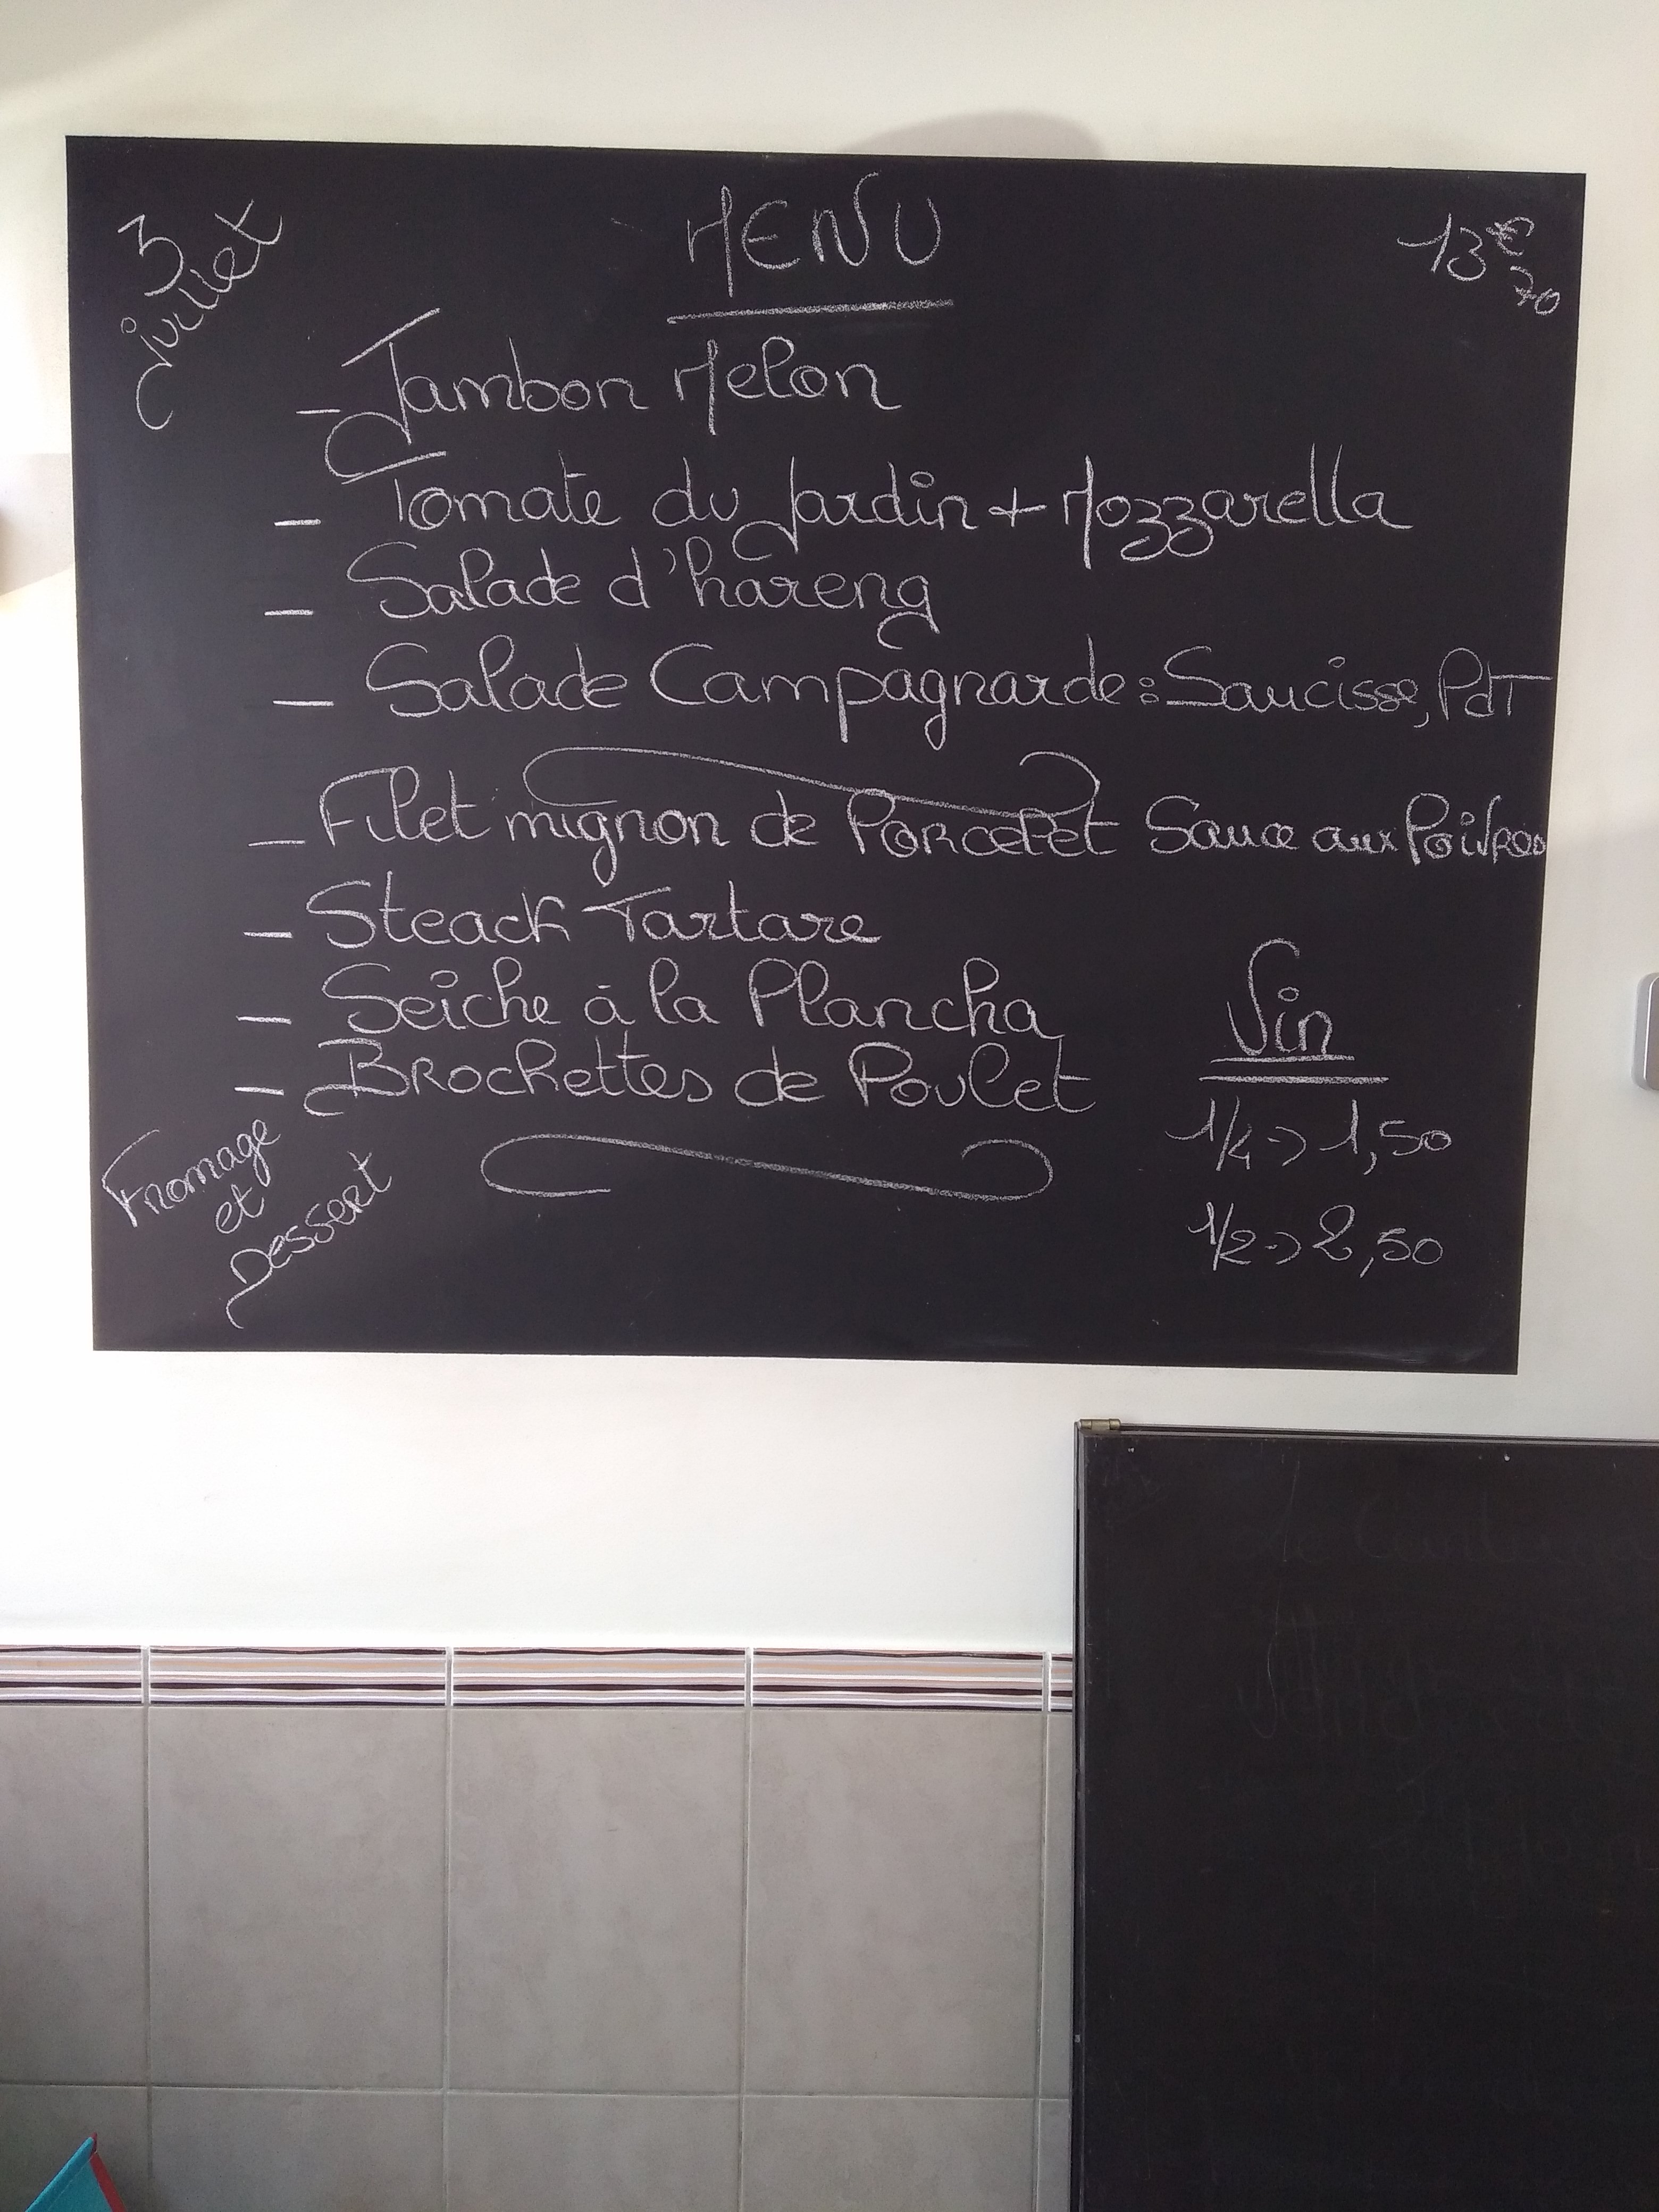 3 Juillet
MENU
13€70
- Jambon Melon
- Tomate du Jardin + Mozzarella
- Salade d'hareng
- Salade Campagnarde : Saucisse, PdT
- Filet mignon de Porcelet Sauce aux Poivres
- Steack Tartare
- Seiche à la Plancha
- Brochettes de Poulet
Vin
1/4 -> 1,50
1/2 -> 2,50
Fromage
et
Dessert